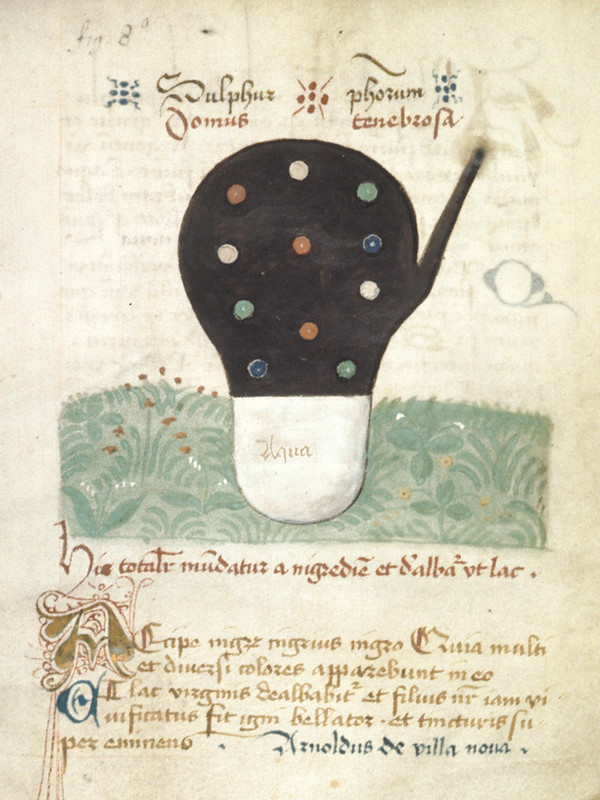 fig. 8ᵃ
Sulphur phorum
Domus tenebrosa
Aqua
Hic totalr mūdatur a nigrediē et dalbaᵗ vt lac .
Accipe nigrᵉ nigrius nigro Quia multi
et diuersi colores apparebunt in eo
lac virginis dealbabitᵗ et filius nr̄ iam vi
uificatus fit igni bellator · et tincturis su
per eminens . Arnoldus de villa noua .